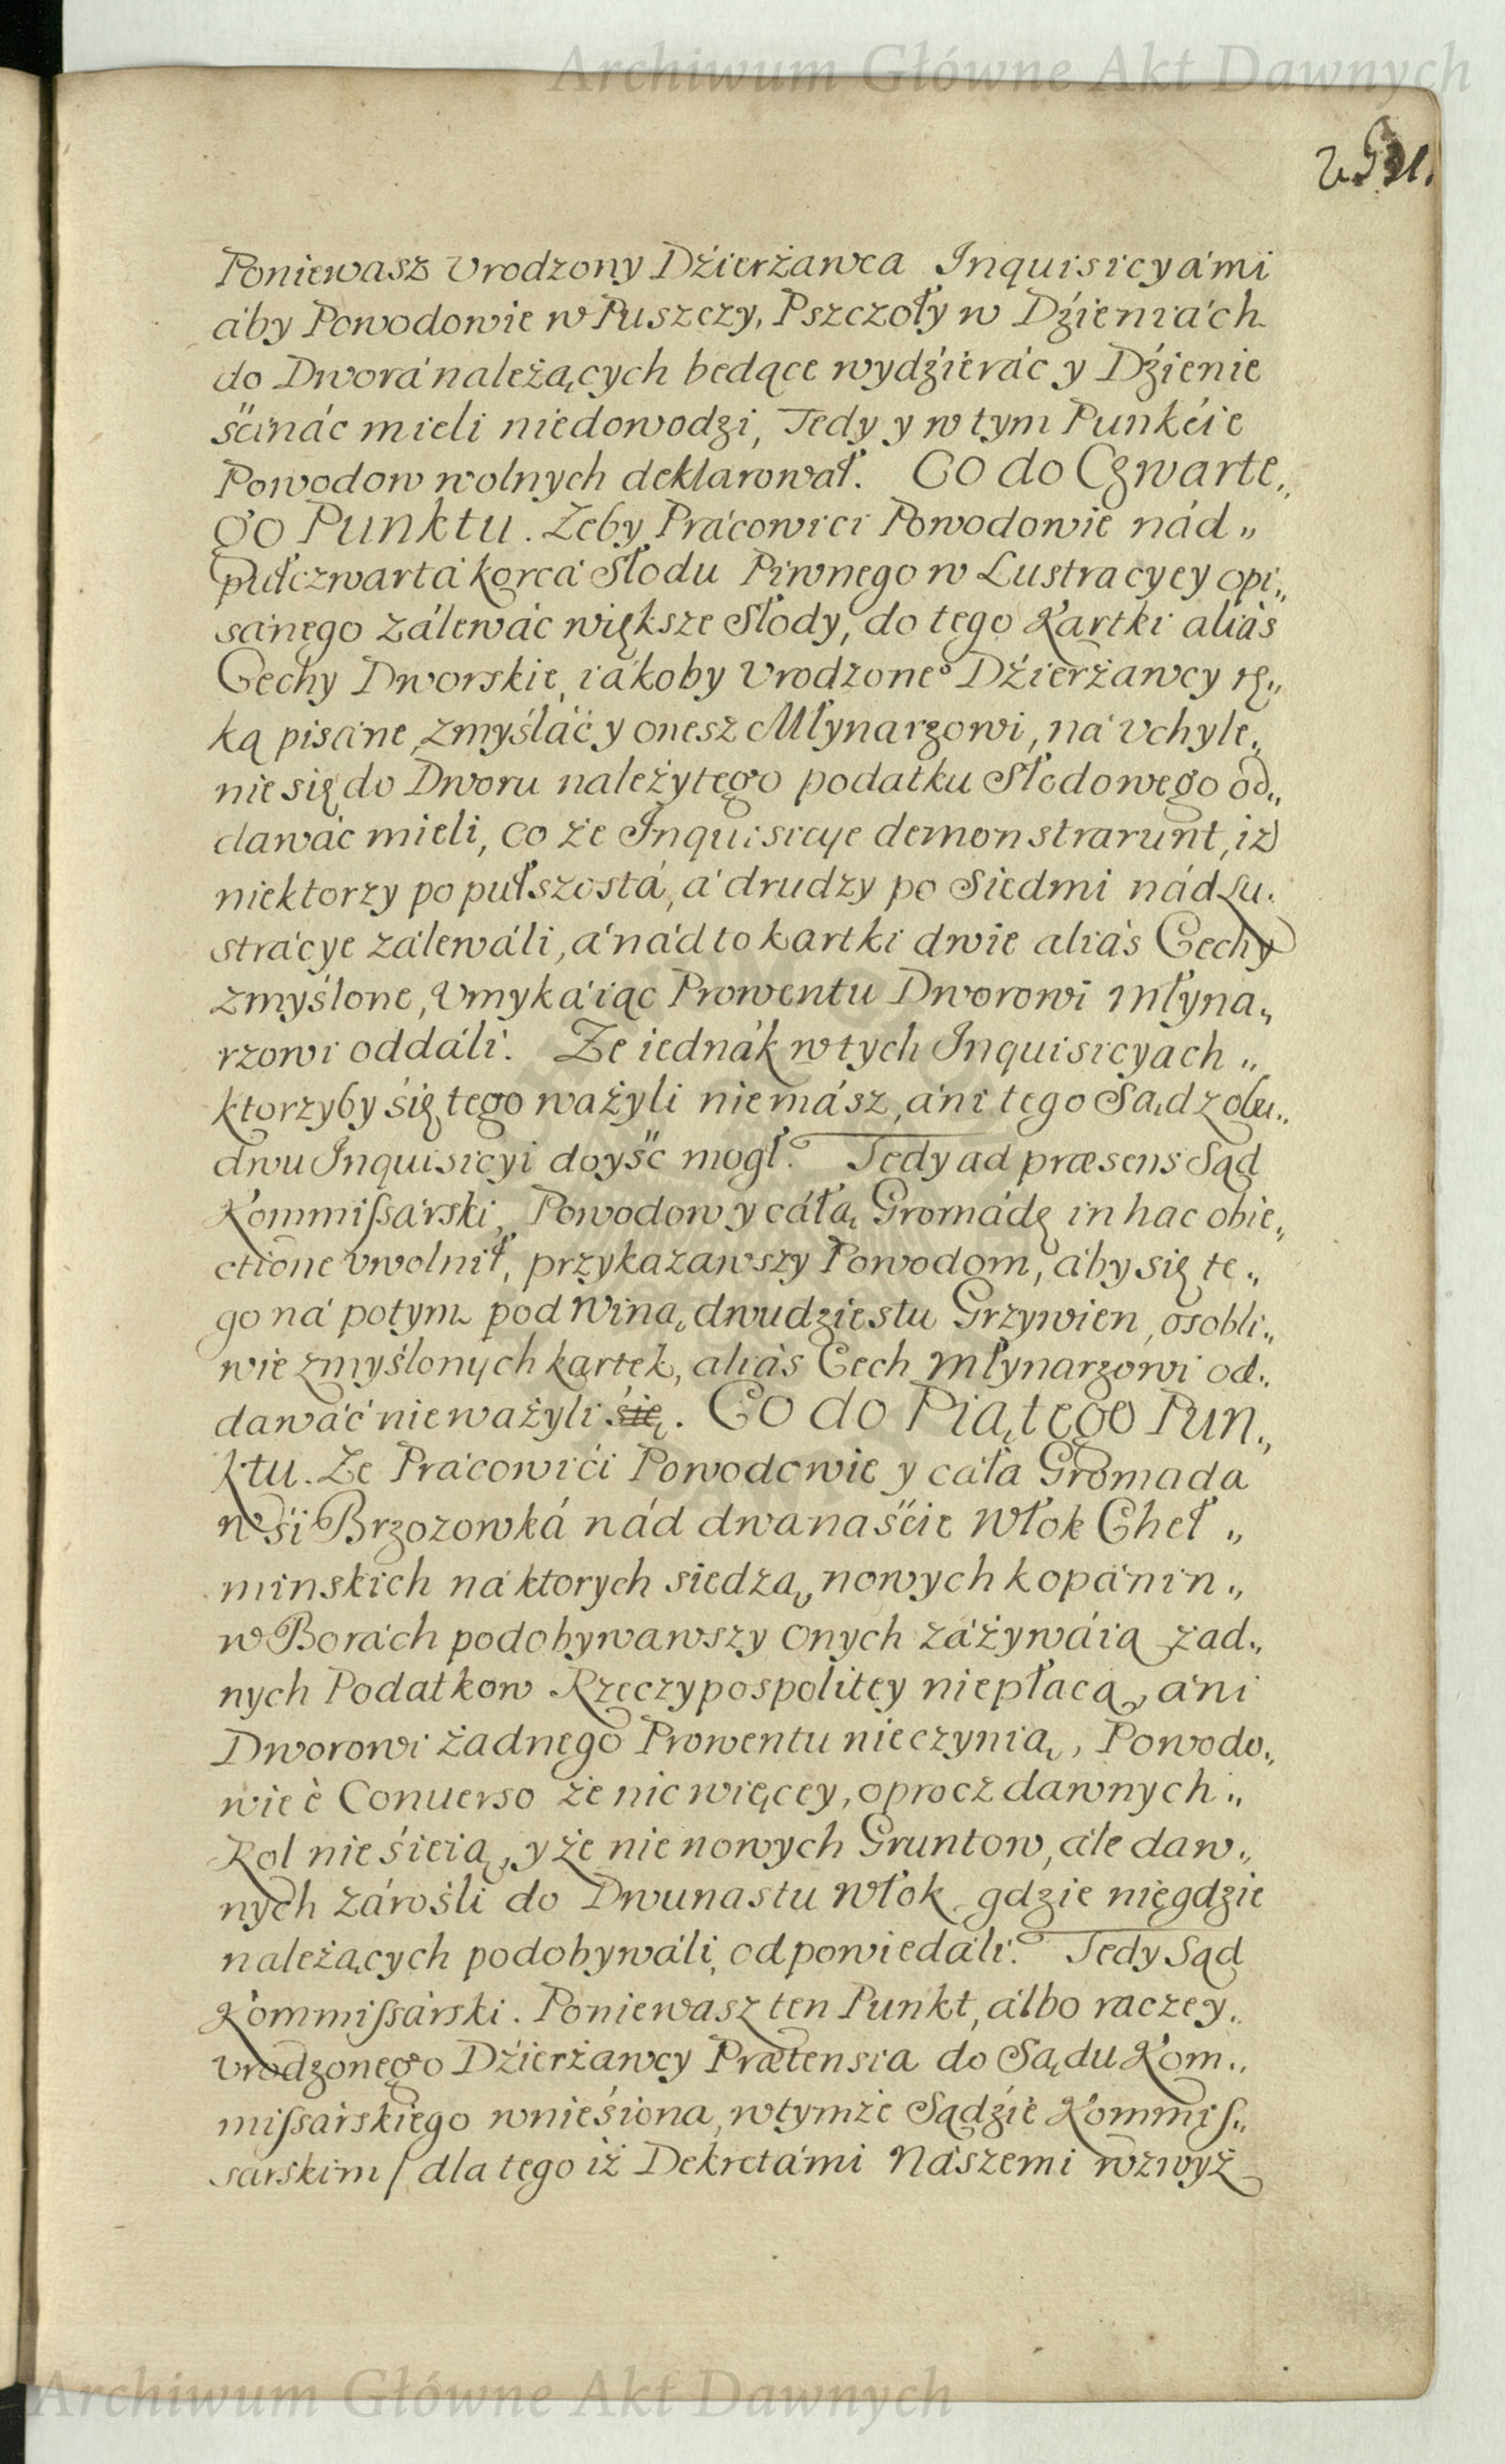 Archiwum Główne Akt Dawnych
Poniewasz Vrodzony Dźierżawca Inquisicyámi
áby Powodowie w Puszczy, Pszczoły w Dźieniách
do Dworá należących bedące wydźieráć y Dźienie
śćináć mieli niedowodzi, Tedy y w tym Punkćie
Powodow wolnych deklarował. Co do Czwarte„
go Punktu. Żeby Prácowici Powodowie nád „
pułczwartá korcá Słodu Piwnego w Lustracyey opi„
sánego zálewáć większe Słody, do tego Kartki aliàs
Cechy Dworskie, iákoby Vrodzone° Dźierżawcy rę„
ką pisáne, zmyśláć y onesz Młynarzowi, ná vchyle„
nie się do Dworu należytego podatku Słodowego od„
dawáć mieli, co że Inquisicye demonstrarunt, iż
niektorzy po pułszostá, á drudzy po Siedmi nád Lu„
strácye zálewáli, á nád to kartki dwie aliàs Cechy
zmyślone, Vmykáiąc Prowentu Dworowi Młyna„
rzowi oddáli. Że iednák w tych Inquisicyach „
ktorzyby się tego ważyli niemász, áni tego Sąd z obu„
dwu Inquisicyi doyść mogł. Tedy ad præsens Sąd
Kommiſsárski, Powodow y cáłą Gromádę in hac obie„
ctione vwolnił, przykazawszy Powodom, áby się te„
go ná potym pod Winą dwudziestu Grzywien, osobli„
wie zmyślonych kartek, aliàs Cech Młynarzowi od„
dawáć nieważyli się. Co do Piątego Pun„
ktu. Że Prácowići Powodowie y cáła Gromada
wśi Brzozowká nád dwanaśćie Włok Cheł „
minskich ná ktorych siedzą, nowych kopánin „
w Borách podobywawszy onych záżywáią żad„
nych Podatkow Rzeczypospolitey niepłacą, áni
Dworowi żadnego Prowentu nieczynią, Powodo„
wie è Conuerso że nic więcey, oprocz dawnych „
Rol nie śieią, y że nie nowych Gruntow, ále daw„
nych zárośli do Dwunastu Włok gdzie niegdzie
należących podobywáli, odpowiedáli. Tedy Sąd
Kommiſsárski. Poniewasz ten Punkt, álbo raczey„
Vrodzonego Dźierżawcy Prætensia do Sądu Kom„
miſsárskiego wnieśiona, w tymże Sądźie Kommiſ„
sarskim / dla tego iż Dekretámi Nászemi wzwyż
Archiwum Główne Akt Dawnych